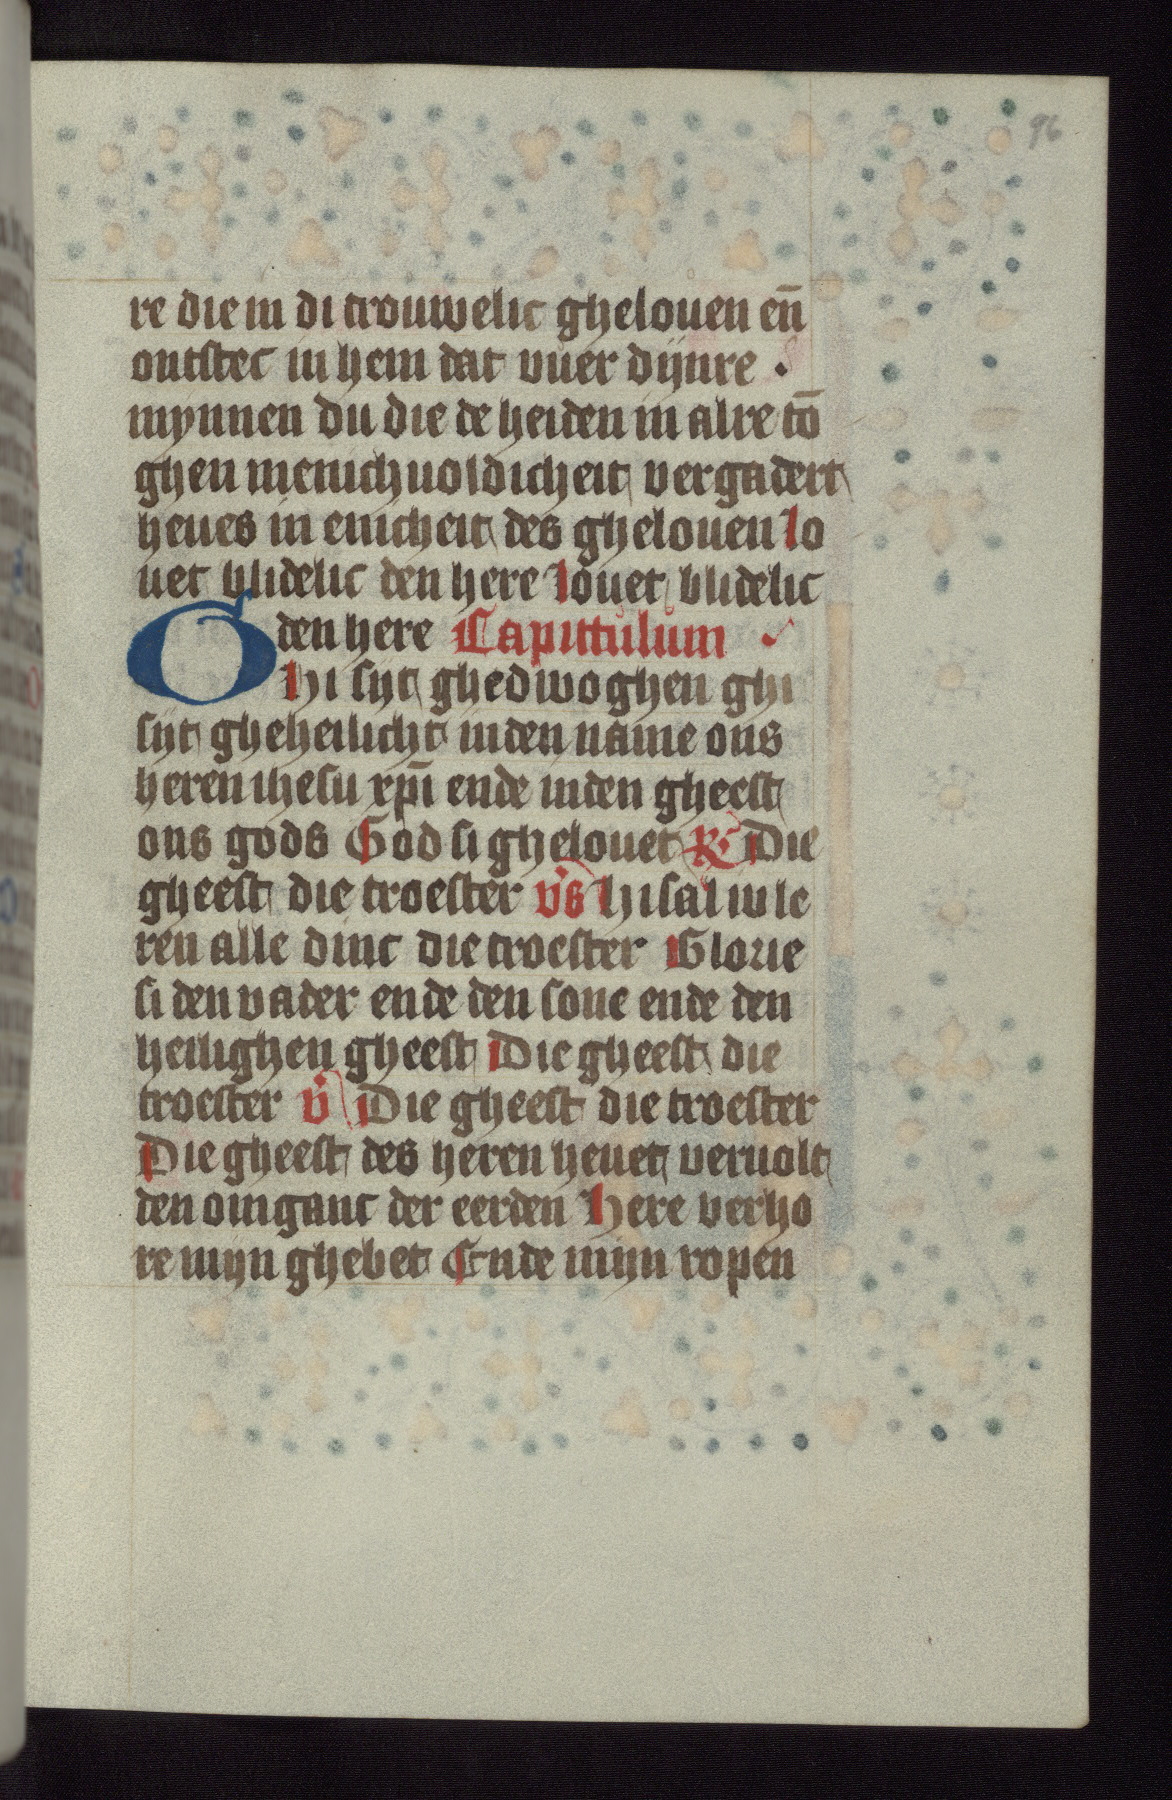 96
re die in di trouwelic ghelouen eñ
ontstec in hem dat vuer dijnre .
mynnen Du die de heiden in alre tō
ghen menichuoldicheit vergadert
heues in enicheit des ghelouen lo
uet blidelic den here louet blidelic
den here Capittulum
Ghi sijt ghedwoghen ghi
sijt gheheilicht inden name ons
heren ihesu xp̄i ende inden gheest
ons gods God si ghelouet R̷ Die
gheest die troester v̓s hi sal iu le
ren alle dinc die troester Glorie
si den vader ende den sone ende den
heilighen gheest Die gheest die
troester v̓ Die gheest die troester
Die gheest des heren heuet veruolt
den omganc der eerden Here verho
re mijn ghebet Ende mijn ropen